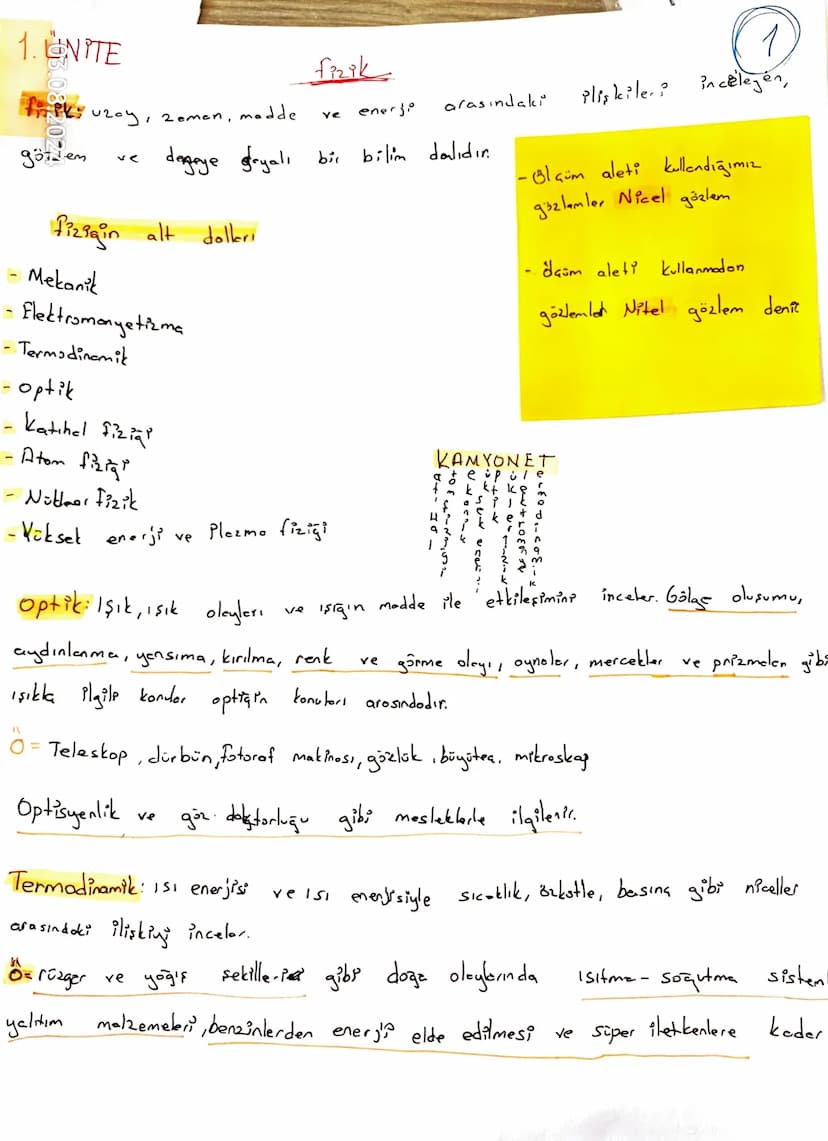 1
1. ÜNİTE
03.08.202
fizik
fizik: uzay, zaman, madde ve enerji arasındaki ilişkileri inceleyen,
gözlem ve deneye dayalı bir bilim dalıdır.
- Ölçüm aleti kullandığımız
gözlemler Nicel gözlem
- ölçüm aleti kullanmadan
gözlemler Nitel gözlem denir
fiziğin alt dalları
- Mekanik
- Elektromanyetizma
- Termodinamik
- optik
- Katıhal fiziği
- Atom fiziği
- Nükleer fizik
- Yüksek enerji ve Plazma fiziği
KAMYONET
Optik: Işık, ışık olayları ve ışığın madde ile etkileşimini inceler. Gölge oluşumu,
aydınlanma, yansıma, kırılma, renk ve görme olayı, aynalar, mercekler ve prizmalar gibi
ışıkla ilgili konular optiğin konuları arasındadır.
Ö= Teleskop, dürbün, fotoraf makinası, gözlük, büyüteç, mikroskop
Optisyenlik ve göz doktorluğu gibi mesleklerle ilgilenir.
Termodinamik: ısı enerjisi ve ısı enerjisiyle sıcaklık, özkütle, basınç gibi niceller
arasındaki ilişkiyi inceler.
Ö= rüzgar ve yağış şekilleri gibi doğa olaylarında ısıtma - soğutma sistem
yalıtım malzemeleri, benzinlerden enerji elde edilmesi ve süper iletkenlere kadar